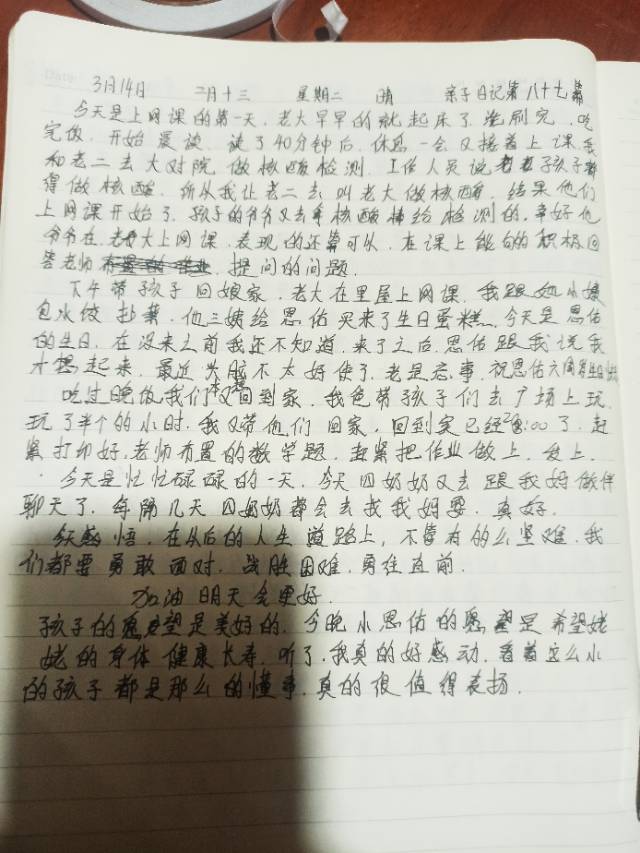 3月14日 二月十三 星期二 晴 亲子日记第八十七篇
今天是上网课的第一天.老大早早的就起床了.洗刷完.吃
完饭.开始晨读.读了40分钟后.休息一会又接着上课我
和老二去大对院做核酸检测.工作人员说孩子都
得做核酸.所从我让老二去叫老大做核酸.结果他们
上网课开始了.孩子的爷爷又去拿核酸棒给检测的.幸好他
爷爷在.老大上网课.表现的还算可从.在课上能够的积极回
答老师提问的问题.
下午带孩子回娘家.老大在里屋上网课.我跟她小姨
包水饺.他三姨给思佑买来了生日蛋糕.今天是思佑
的生日.在没来之前我还不知道.来了之后.思佑跟我说我
才想起来.最近头脑不太好使了.老是忘事.祝思佑六周岁生日快
吃过晚饭我们又回到家.我爸带孩子们去广场上玩.
玩了半个的小时.我又带他们回家.回到家已经:00了.赶
紧打印好.老师布置的数学题.赶紧把作业做上.发上.
今天是忙忙碌碌的一天.今天四奶奶又去跟我妈做伴
聊天了.每隔几天四奶奶都会去找我妈耍.真好.
感悟.在从后的人生道路上.不管有的么坚难.我
们都要勇敢面对.战胜困难.勇往直前.
加油明天会更好.
孩子的愿望是美好的.今晚小思佑的愿望是希望姥
姥的身体健康长寿.听了.我真的好感动.看着这么小
的孩子都是那么的懂事.真的很值得表扬.